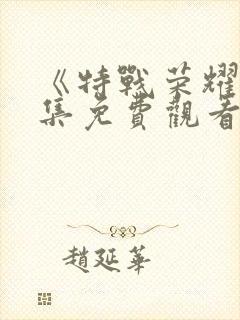 《特戰荣耀
集免費觀看
趙延華